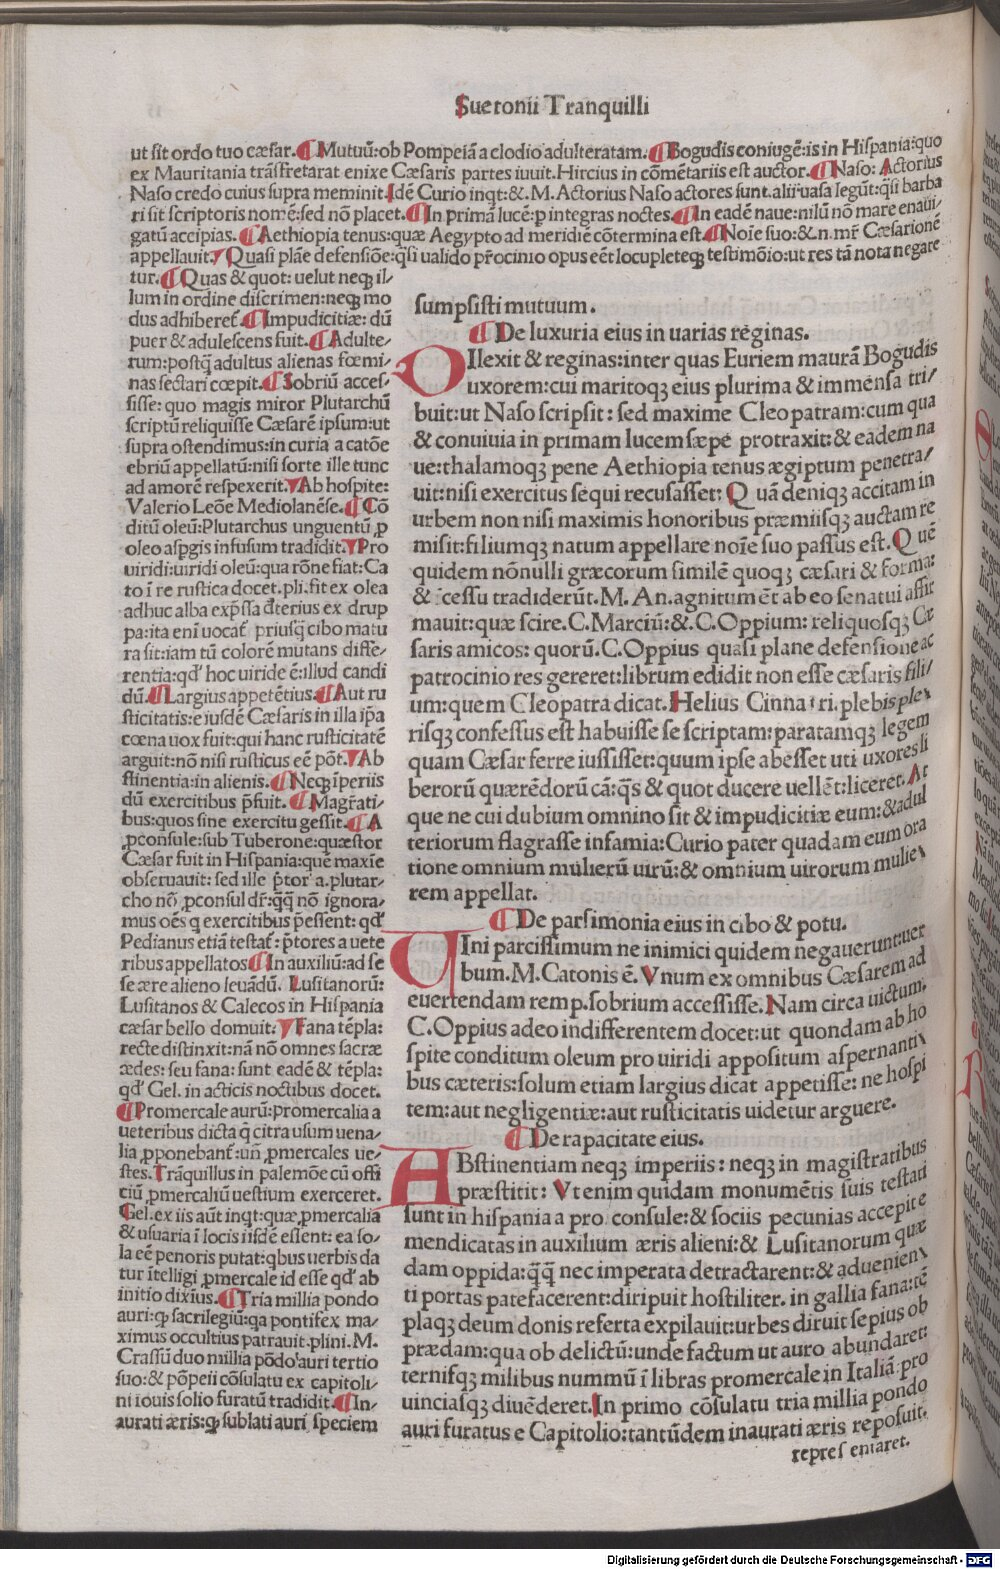 Suetonii Tranquilli
ut sit ordo tuo cæsar. ¶ Mutuũ:ob Pompeiã a clodio adulteratam. ¶ Bogudis coniugẽ:is in Hispania:quo
ex Mauritania trãsfretarat enixe Cæsaris partes iuuit. Hircius in cõmẽtariis est auctor. ¶ Naso: Actorius
Naso credo cuius supra meminit. Idẽ Curio inqt:&. M. Actorius Naso actores sunt. alii uasa legũt:q̃si barba
ri sit scriptoris nomẽ:sed nõ placet. ¶ In primã lucẽ:p integras noctes. ¶ In eadẽ naue:nilũ nõ mare enaui/
gatũ accipias. ¶ Aethiopia tenus:quæ Aegypto ad meridiẽ cõtermina est. ¶ Noĩe suo:&.n. mr̃ Cæsarionẽ
appellauit. ¶ Quasi plãe defensiõe:q̃si ualido pr̃ocinio opus eẽt locupleteqꝫ testimõio:ut res tã nota negare
tur. ¶ Quas & quot: uelut neqꝫ il/
lum in ordine discrimen:neqꝫ mo
dus adhiberet̃. ¶ Impudicitiæ: dũ
puer & adulescens fuit. ¶ Adulte/
rum:postq̃ adultus alienas fœmi/
nas sectari cœpit. ¶ Sobriũ acces/
sisse: quo magis miror Plutarchũ
scriptũ reliquisse Cæsarẽ ipsum:ut
supra ostendimus:in curia a catõe
ebriũ appellatũ:nisi forte ille tunc
ad amorẽ respexerit. ¶ Ab hospite:
Valerio Leõe Mediolanẽse. ¶ Cõ
ditũ oleũ:Plutarchus unguentũ ꝓ
oleo asꝑgis infusum tradidit. ¶ Pro
uiridi:uiridi oleũ:qua rõne fiat:Ca
to ĩ re rustica docet. pli. fit ex olea
adhuc alba exp̃ssa d̃terius ex drup
pa:ita enĩ uocat̃ priusq̃ cibo matu
ra sit:iam tũ colorẽ mutans diffe/
rentia:qd̓ hoc uiride ẽ:illud candi
dũ. ¶ Largius appetẽtius. ¶ Aut ru
sticitatis:eiusdẽ Cæsaris in illa ip̃a
cœna uox fuit:qui hanc rusticitatẽ
arguit:nõ nisi rusticus eẽ põt. ¶ Ab
stinentia:in alienis. ¶ Neqꝫ ĩperiis
dũ exercitibus p̃fuit. ¶ Magr̃ati/
bus:quos sine exercitu gessit. ¶ A
ꝓconsule:sub Tuberone:quæstor
Cæsar fuit in Hispania:quẽ maxĩe
obseruauit: sed ille p̃tor̓ a. plutar/
cho nõ ꝓconsul dr̃:q̃q̃ nõ ignora/
mus oẽs q exercitibus p̃essent: qd̓
Pedianus etiã testat̃: p̃tores a uete
ribus appellatos ¶ In auxiliũ:ad se
se ære alieno leuãdũ. Lusitanorũ:
Lusitanos & Calecos in Hispania
cæsar bello domuit. ¶ Fana tẽpla:
recte distinxit:nã nõ omnes sacræ
ædes: seu fana: sunt eadẽ & tẽpla:
qd̓ Gel. in acticis noctibus docet.
¶ Promercale aurũ:promercalia a
ueteribus dicta q̃ citra usum uena/
lia ꝓponebant̃:uñ ꝓmercales ue/
stes. Trãquillus in palemõe cũ offi
ciũ ꝓmercaliũ uestium exerceret.
Gel. ex iis aũt inqt:quæ ꝓmercalia
& usuaria ĩ locis iisdẽ essent: ea so/
la eẽ penoris putat:qbus uerbis da
tur ĩtelligi ꝓmercale id esse qd̓ ab
initio dixĩus. ¶ Tria millia pondo
auri:ꝙ sacrilegiũ:qa pontifex ma/
ximus occultius patrauit. plini. M.
Crassũ duo millia põdo auri tertio
suo:& põpeii cõsulatu ex capitoli/
ni iouis solio furatũ tradidit. ¶ In/
aurati æris:ꝙ sublati auri speciem
sumpsisti mutuum.
¶ De luxuria eius in uarias reginas.
DIlexit & reginas:inter quas Euriem maurã Bogudis
uxorem:cui maritoqꝫ eius plurima & immensa tri/
buit:ut Naso scripsit: sed maxime Cleopatram:cum qua
& conuiuia in primam lucem sæpe protraxit:& eadem na
ue:thalamoqꝫ pene Aethiopia tenus ægiptum penetra/
uit:nisi exercitus sequi recusasset: Quã deniqꝫ accitam in
urbem non nisi maximis honoribus præmiisqꝫ auctam re
misit:filiumqꝫ natum appellare noĩe suo passus est. Quẽ
quidem nõnulli græcorum similẽ quoqꝫ cæsari & forma:
& ĩcessu tradiderũt. M. An. agnitum ẽt ab eo senatui affir
mauit:quæ scire. C. Marciũ:&. C. Oppium: reliquosqꝫ Cæ
saris amicos: quorũ. C. Oppius quasi plane defensione ac
patrocinio res gereret:librum edidit non esse cæsaris fili/
um:quem Cleopatra dicat. Helius Cinna tri. plebis ple
risqꝫ confessus est habuisse se scriptam:paratamqꝫ legem
quam Cæsar ferre iussisset:quum ipse abesset uti uxores li
berorũ quærẽdorũ cã:q̃s & quot ducere uellẽt:liceret. At
que ne cui dubium omnino sit & impudicitiæ eum:& adul
teriorum flagrasse infamia:Curio pater quadam eum ora
tione omnium mulierũ uirũ:& omnium uirorum mulie
rem appellat.
¶ De parsimonia eius in cibo & potu.
VIni parcissimum ne inimici quidem negauerunt:uer
bum. M. Catonis ẽ. Vnum ex omnibus Cæsarem ad
euertendam remp. sobrium accessisse. Nam circa uictum.
C. Oppius adeo indifferentem docet:ut quondam ab ho
spite conditum oleum pro uiridi appositum aspernanti
bus cæteris:solum etiam largius dicat appetisse: ne hospi
tem:aut negligentiæ:aut rusticitatis uidetur arguere.
¶ De rapacitate eius.
ABstinentiam neqꝫ imperiis: neqꝫ in magistratibus
præstitit: Vt enim quidam monumẽtis suis testati
sunt in hispania a pro consule:& sociis pecunias accepite
mendicatas in auxilium æris alieni:& Lusitanorum quæ
dam oppida:q̃q̃ nec imperata detractarent:& aduenien
ti portas patefacerent:diripuit hostiliter. in gallia fana:tẽ
plaqꝫ deum donis referta expilauit:urbes diruit sepius ob
prædam:qua ob delictũ:unde factum ut auro abundaret:
ternisqꝫ milibus nummũ ĩ libras promercale in Italiã:pro
uinciasqꝫ diuẽderet. In primo cõsulatu tria millia pondo
auri furatus e Capitolio:tantũdem inaurati æris reposuit.
repres entaret.
Digitalisierung gefördert durch die Deutsche Forschungsgemeinschaft - DFG